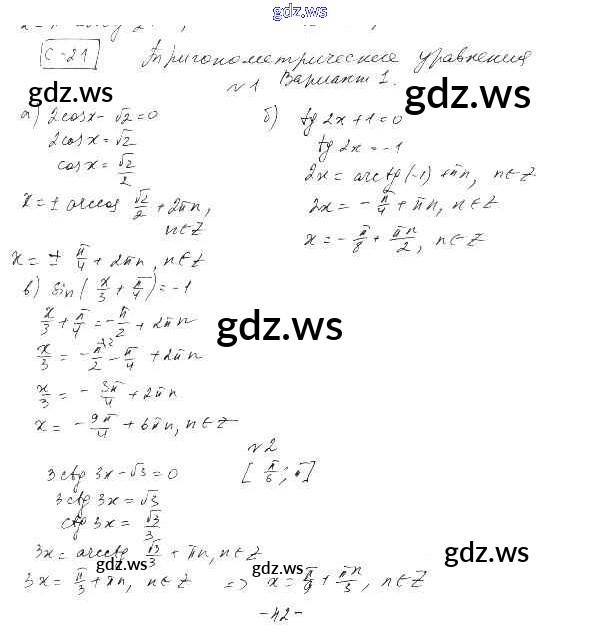 gdz.ws
С-21 Тригонометрические уравнения
gdz.ws
№1 Вариант 1.
gdz.ws
а) 2cosx - √2 = 0
2cosx = √2
cosx = √2/2
x = ± arccos √2/2 + 2πn,
n∈Z
x = ± π/4 + 2πn, n∈Z
б) tg 2x + 1 = 0
tg 2x = -1
2x = arctg(-1) + πn, n∈Z
2x = -π/4 + πn, n∈Z
x = -π/8 + πn/2, n∈Z
в) sin(x/3 + π/4) = -1
x/3 + π/4 = -π/2 + 2πn
gdz.ws
x/3 = -π/2 - π/4 + 2πn
x/3 = -3π/4 + 2πn
x = -9π/4 + 6πn, n∈Z
№2
3ctg 3x - √3 = 0 [π/6; π]
3ctg 3x = √3
ctg 3x = √3/3
3x = arcctg √3/3 + πn, n∈Z
gdz.ws
gdz.ws
3x = π/3 + πn, n∈Z => x = π/9 + πn/3, n∈Z
gdz.ws
-42-